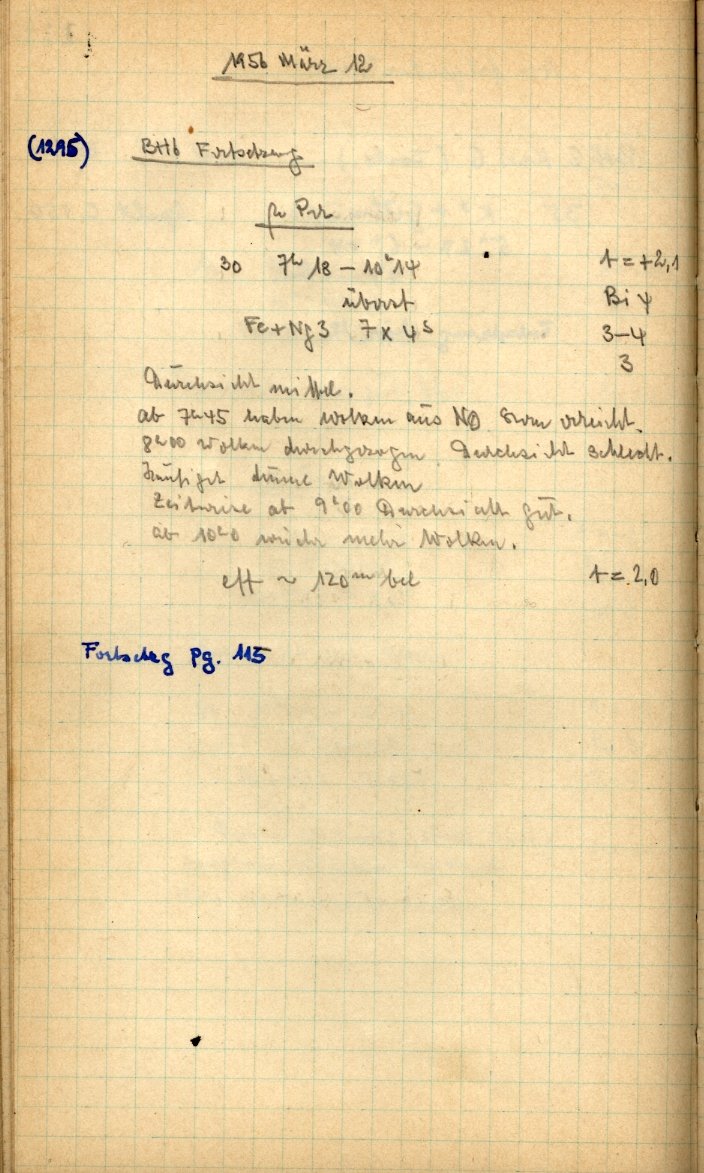 1956 März 12
(1295) BHb Fortsetzung
Per
30 7h 18 – 10h 14 t = +2,1
Bi 4
Fe + Ng 3 7 x 4s 3–4
3
Durchsicht mittel.
ab 7h45 haben Wolken aus NO erreicht.
8h00 Wolken durchgezogen Durchsicht schlecht.
häufiger dünne Wolken
Zeitweise ab 9h00 Durchsicht gut.
ab 10h0 wieder mehr Wolken.
eff ~ 120m bel t = 2,0
Fortsetzg pg. 115